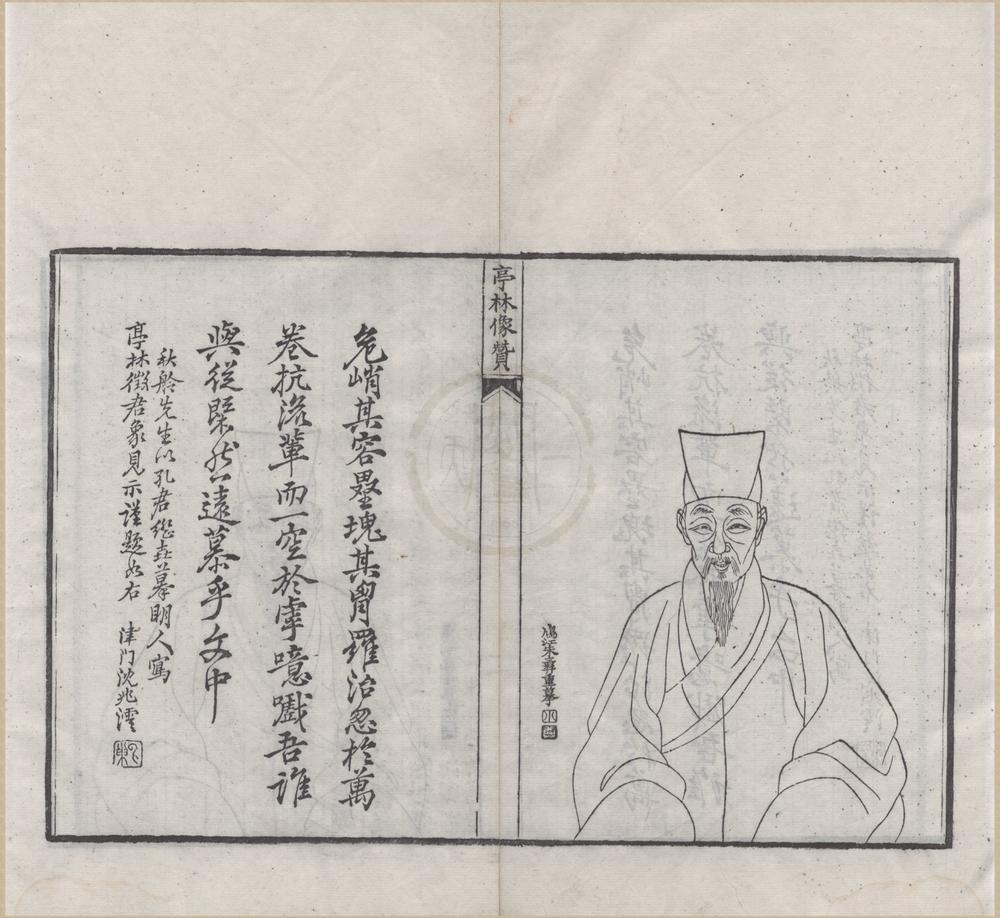 鳩江朱彝重摹
亭林像贊
危峭其容壘塊其胷羅治忽於萬
卷抗流輩而一空於虖噫戲吾誰
與從槩然遠慕乎文中
秋舲先生以孔君繼堯摹明人寫
亭林徵君象見示謹題如右
津門沈兆澐